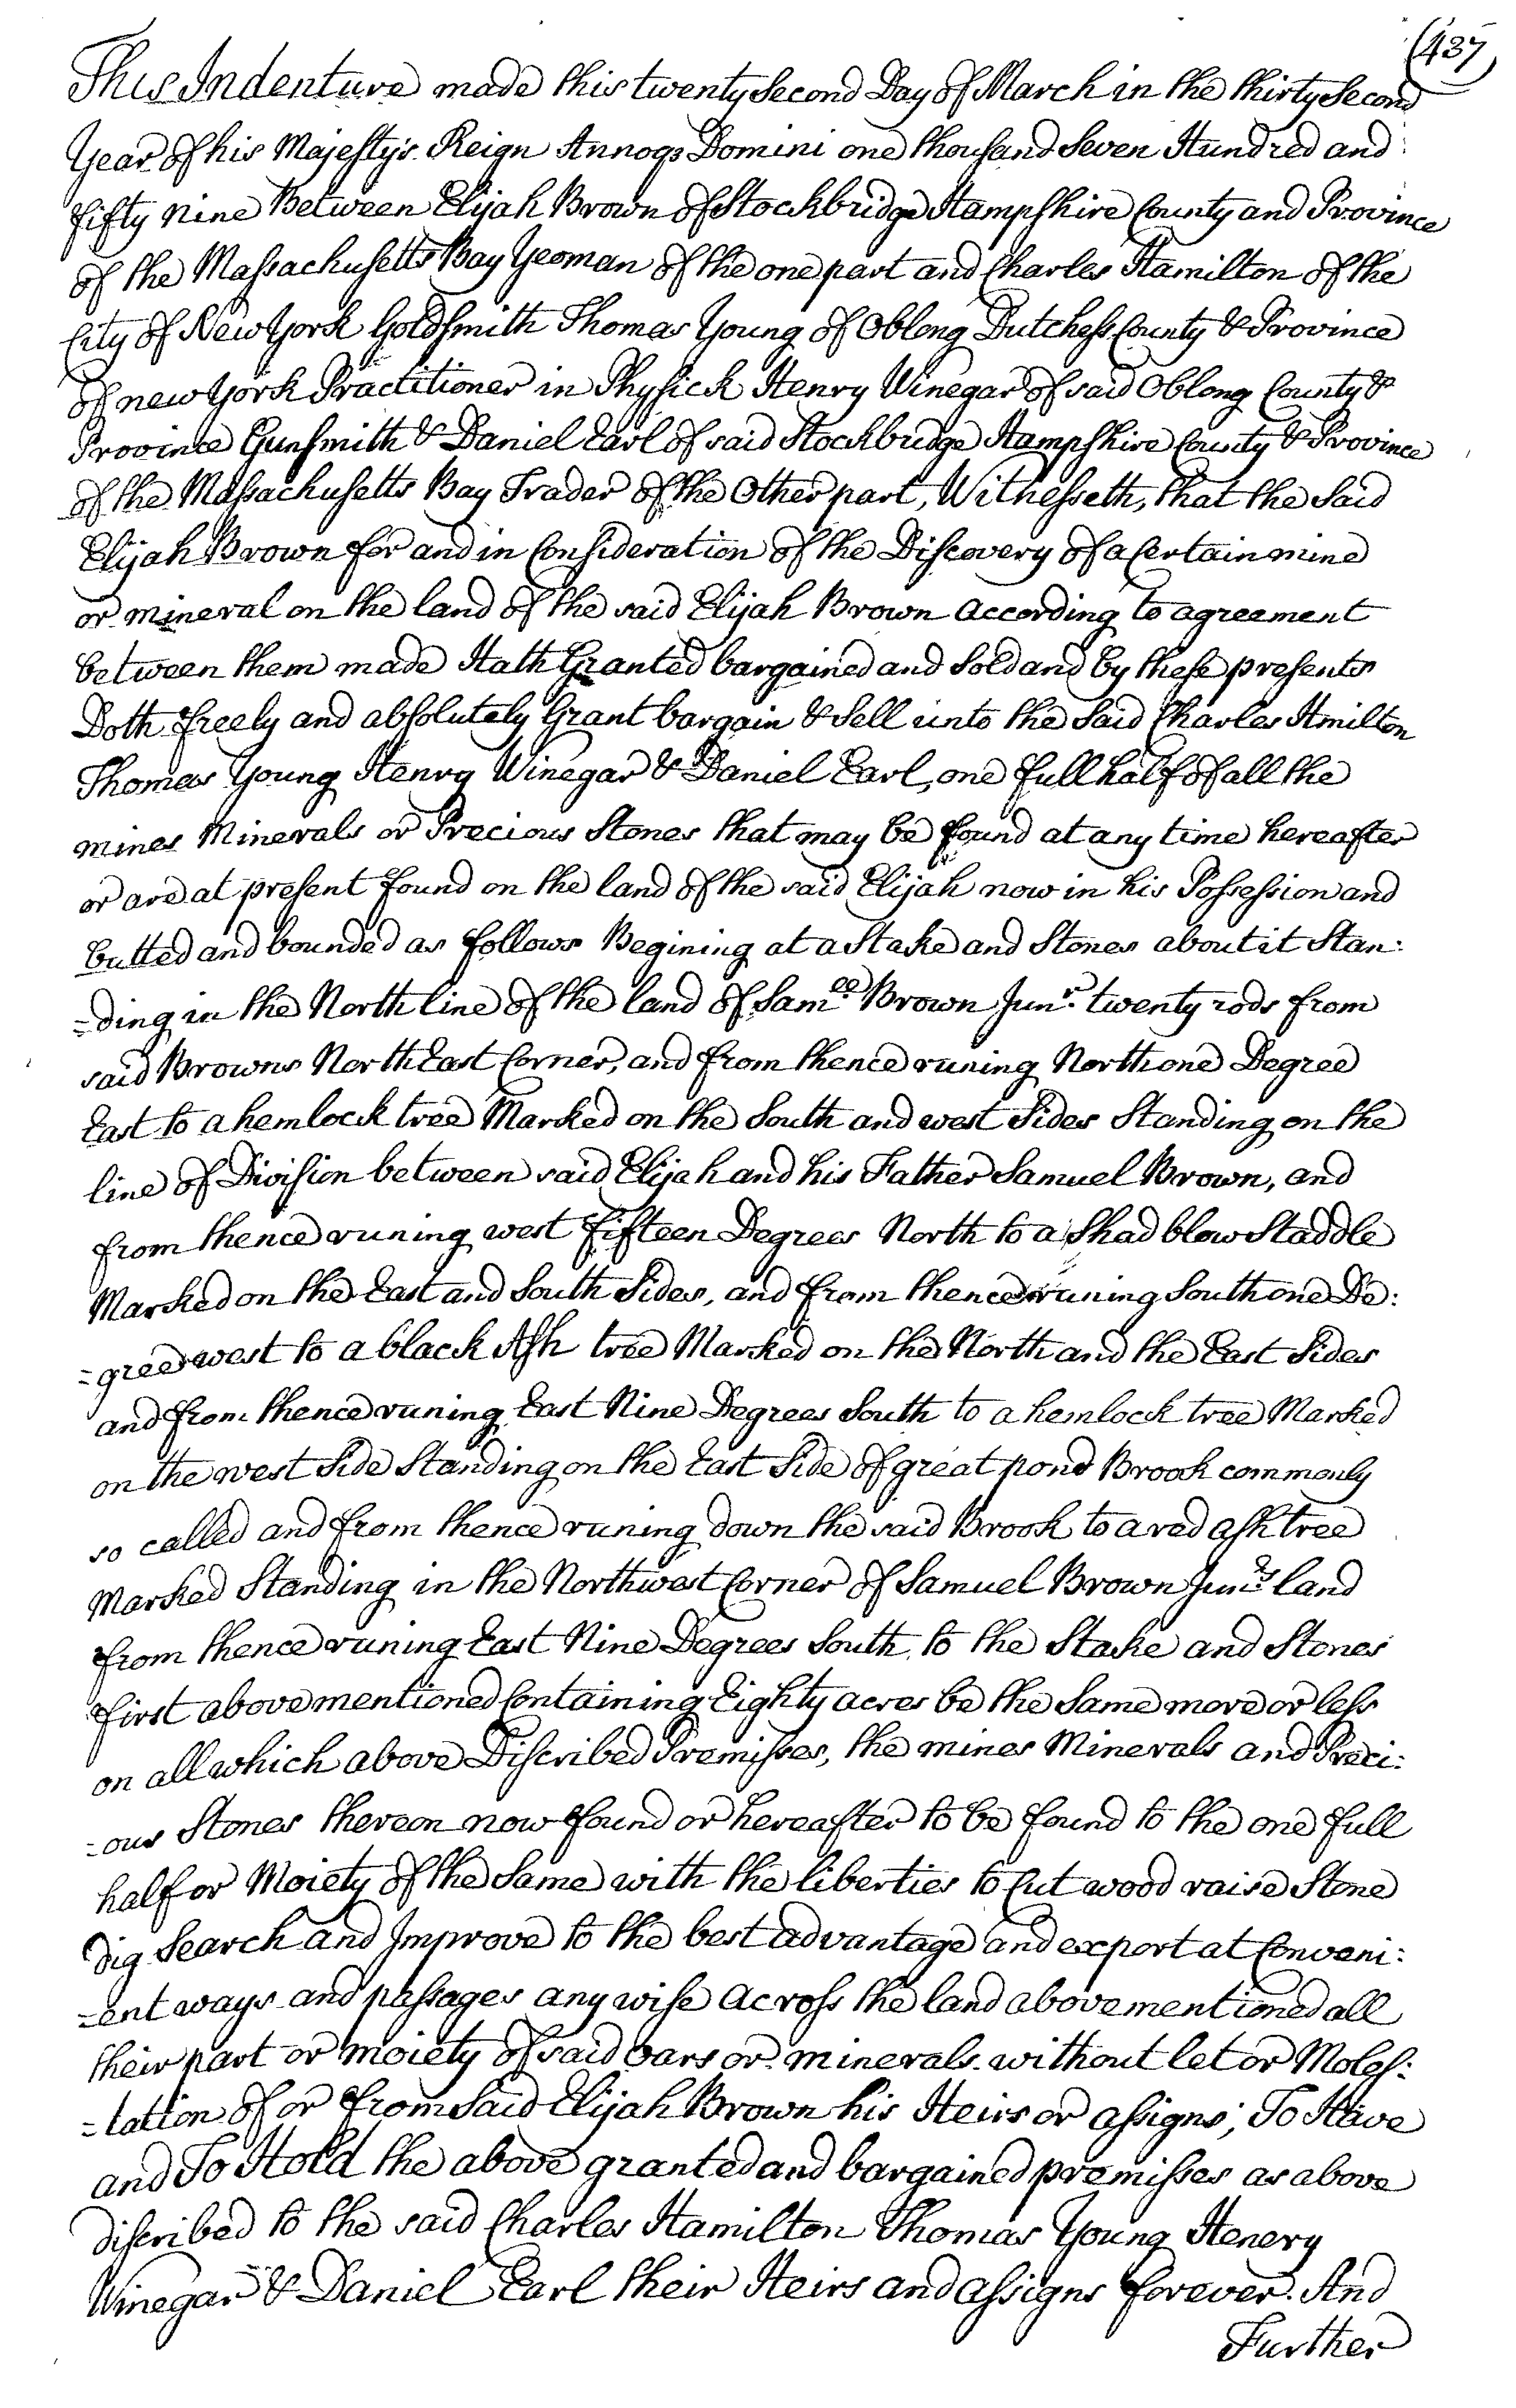 (437)
This Indenture made this twenty Second Day of March in the thirty Second
Year of his Majesty's Reign Annoqs Domini one thousand Seven Hundred and
fifty nine Between Elijah Brown of Stockbridge Hampshire County and Province
of the Massachusetts Bay Yeoman of the one part and Charles Hamilton of the
City of New York Goldsmith Thomas Young of Oblong Dutchess County & Province
of new York Practitioner in Physick Henry Winegar of said Oblong County &
Province Gunsmith & Daniel Earl of said Stockbridge Hampshire County & Province
of the Massachusetts Bay Trader of the Other part, Witnesseth, that the Said
Elijah Brown for and in Consideration of the Discovery of a Certain mine
or mineral on the land of the said Elijah Brown according to agreement
between them made Hath Granted bargained and Sold and by these presents
Doth freely and absolutely Grant bargain & Sell unto the Said Charles Hmilton
Thomas Young Henry Winegar & Daniel Earl, one full half of all the
mines Minerals or Precious Stones that may be found at any time hereafter
or are at present found on the land of the said Elijah now in his Possession and
butted and bounded as follows Begining at a Stake and Stones about it Stan:
=ding in the North line of the land of Samll. Brown Junr. twenty rods from
said Browns North East Corner, and from thence runing North one Degree
East to a hemlock tree Marked on the South and west Sides Standing on the
line of Division between said Elijah and his Father Samuel Brown, and
from thence runing west fifteen Degrees North to a Shad blow Staddle
Marked on the East and South Sides, and from thence runing South one De:
=gree west to a black Ash tree Marked on the North and the East Sides
and from thence runing East Nine Degrees South to a hemlock tree Marked
on the west Side Standing on the East Side of great pond Brook commonly
so called and from thence runing down the said Brook to a red ash tree
Marked Standing in the Northwest Corner of Samuel Brown Junrs. land
from thence runing East Nine Degrees South to the Stake and Stones
first above mentioned Containing Eighty acres be the Same more or less
on all which above Discribed Premisses, the mines Minerals and Preci:
=ous Stones thereon now found or hereafter to be found to the one full
half or Moiety of the Same with the liberties to Cut wood raise Stone
dig Search and Improve to the best advantage and export at Conveni:
=ent ways and passages any wise across the land above mentioned all
their part or moiety of said oars or minerals without let or Moles:
=tation of or from Said Elijah Brown his Heirs or assigns; To Have
and To Hold the above granted and bargained premisses as above
discribed to the said Charles Hamilton Thomas Young Henery
Winegar & Daniel Earl their Heirs and assigns forever. And
Further